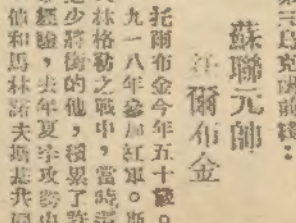 第三烏克蘭前綫：
蘇聯元帥
托爾布金
托爾布金今年五十歲。
九一八年參加紅軍。斯
林格勒之戰中，當時還
少將銜的他，積累了許
經驗，去年夏季攻勢中
他和馬林諾夫斯基共同